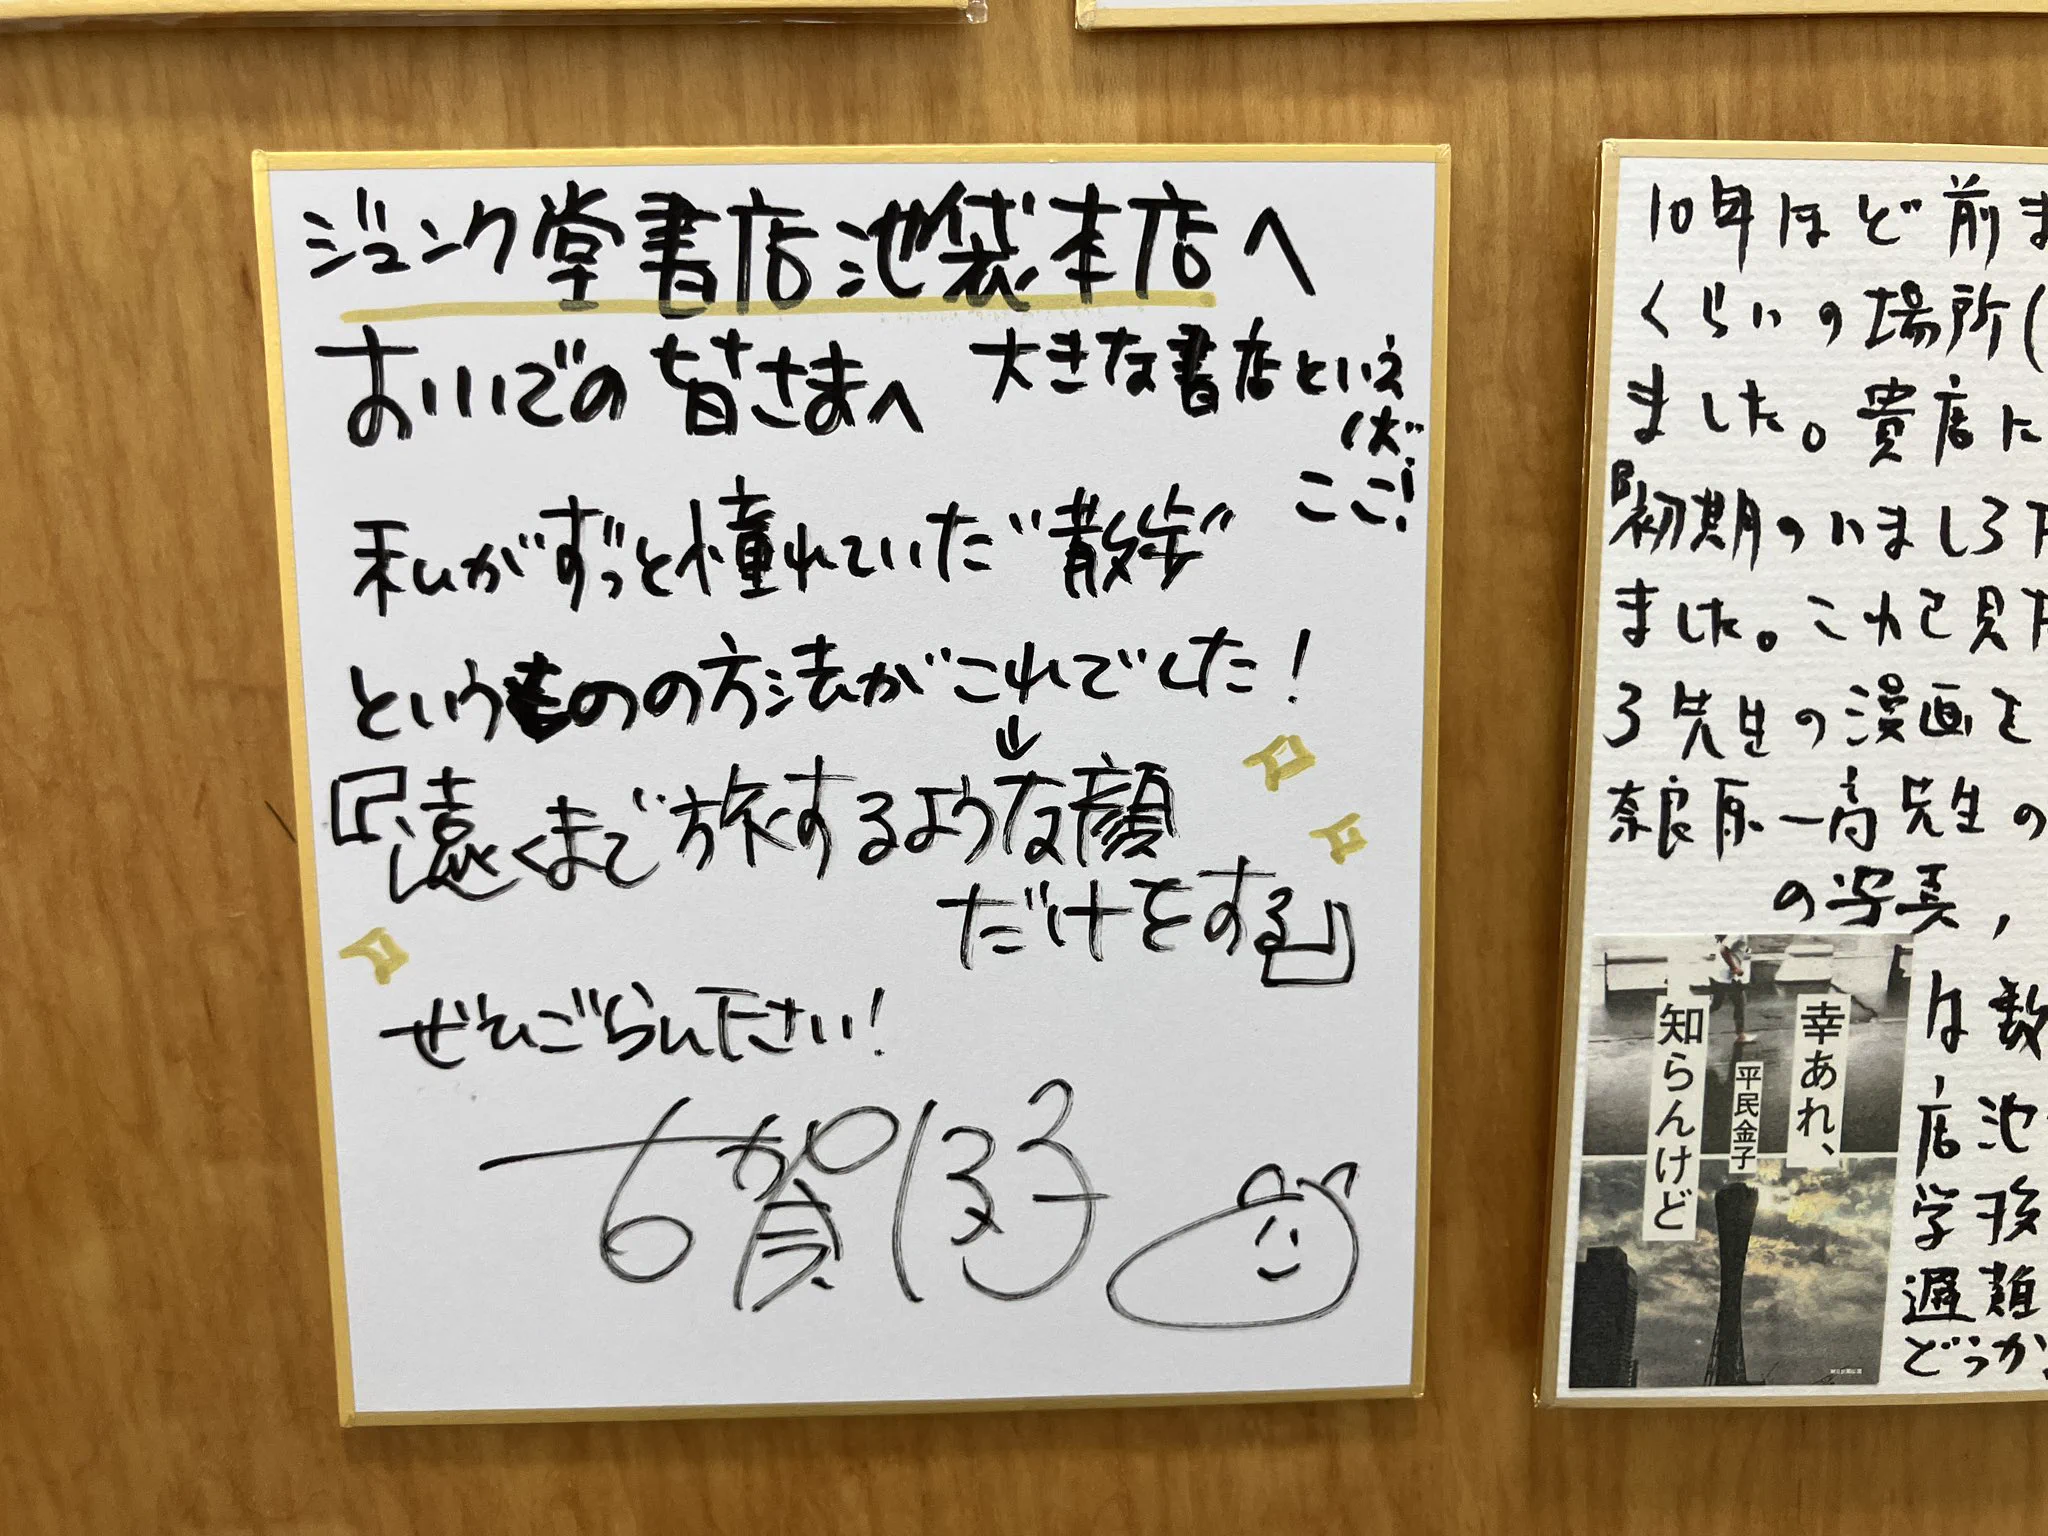 ジュンク堂書店池袋本店へ
おいでの皆さまへ
大きな書店といえ
ば
ここ!
私がずっと憧れていた"散歩"
というものの方法がこれでした!
↓
『遠くまで旅するような顔
だけをする』
ぜひごらん下さい!
古賀及子
10年ほど前ま
くらいの場所(
ました。貴店に
『初期のいましろた
ました。これで見た
ろ先生の漫画を
奈良原一高先生の
の写真,
は数
店池
学授
避難
どうか
幸あれ、
知らんけど
平民金子